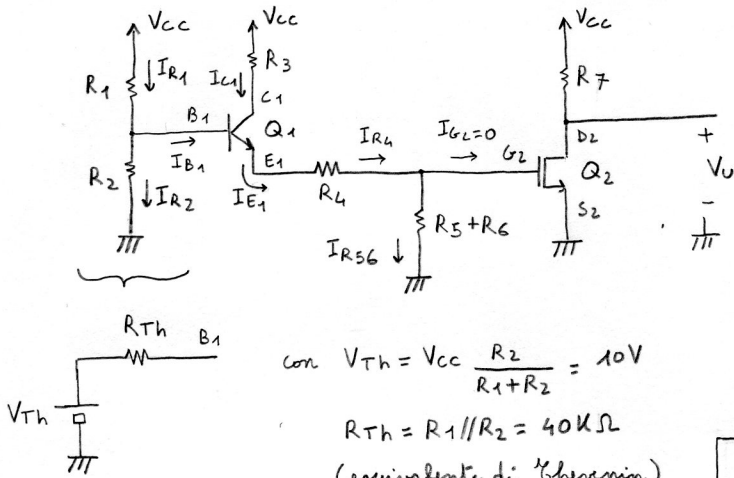 Vcc
Vcc
Vcc
R1
IR1
IC1
R3
R7
C1
B1
Q1
IR4
IG2=0
D2
+
IB1
E1
G2
Q2
Vu
R2
IR2
IE1
R4
S2
-
R5+R6
IR56
RTh
B1
VTh
con VTh = Vcc R2 / R1+R2 = 10V
RTh = R1//R2 = 40KΩ
(equivalente di Thevenin)